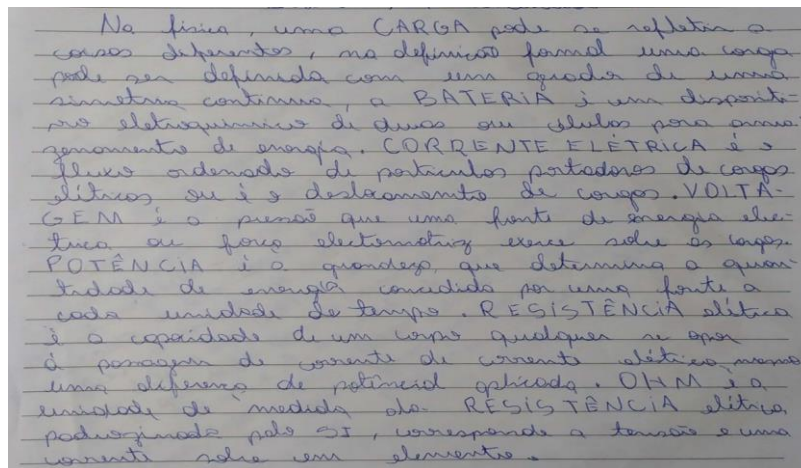 Na física, uma CARGA pode se refletir a
coisas diferentes, na definição formal uma carga
pode ser definida com um gerador de uma
simetria contínua, a BATERIA é um dispositi-
vo eletroquímico de duas ou células para arma-
zenamento de energia. CORRENTE ELÉTRICA é o
fluxo ordenado de partículas portadoras de cargas
elétricas ou é o deslocamento de cargas. VOLTA-
GEM é a pressão que uma fonte de energia elec-
trica ou força electomotriz exerce sobre as cargas.
POTÊNCIA é a grandeza que determina a quan-
tidade de energia concedida por uma fonte a
cada unidade de tempo. RESISTÊNCIA elétrica
é a capacidade de um corpo qualquer se opor
á passagem de corrente de corrente elétrica mesmo
uma diferença de potêncial aplicada. OHM é a
unidade de medida da RESISTÊNCIA elétrica,
pelo SI, corresponde a tensão e uma
corrente sobre um elemento.